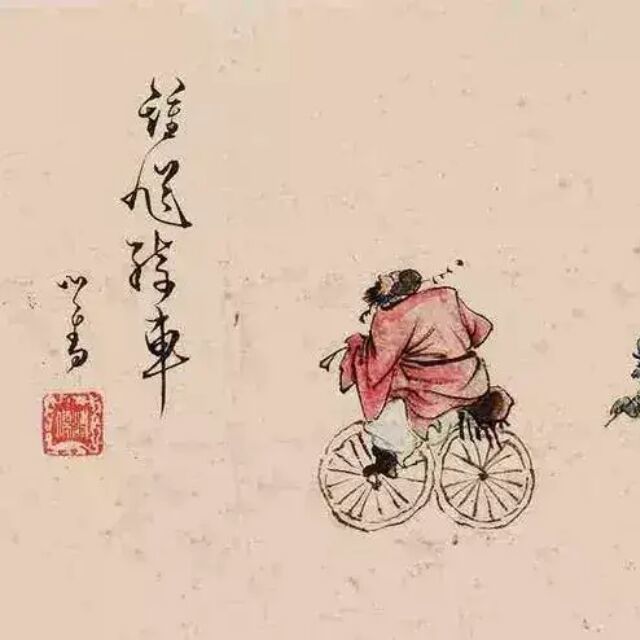 鍾馗騎車
心畬